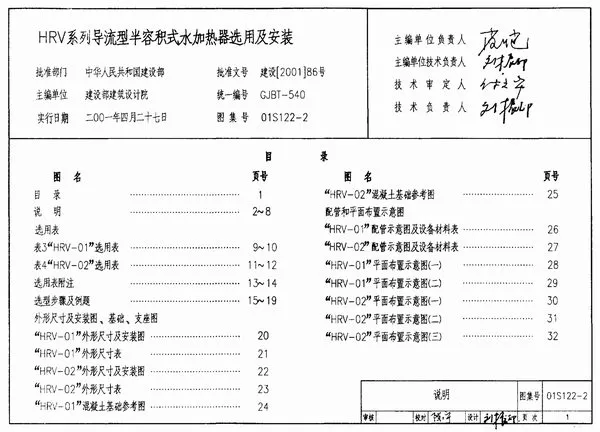 HRV系列导流型半容积式水加热器选用及安装
批准部门 中华人民共和国建设部 批准文号 建设[2001]86号
主编单位 建设部建筑设计院 统一编号 GJBT-540
实行日期 二00一年四月二十七日 图集号 01S122-2
主编单位负责人
主编单位技术负责人
技术审定人
技术负责人
目 录
图名 页号
目录 1
说明 2~8
选用表
表3“HRV-01”选用表 9~10
表4“HRV-02”选用表 11~12
选用表附注 13~14
选型步骤及例题 15~19
外形尺寸及安装图、基础、支座图
“HRV-01”外形尺寸及安装图 20
“HRV-01”外形尺寸表 21
“HRV-02”外形尺寸及安装图 22
“HRV-02”外形尺寸表 23
“HRV-01”混凝土基础参考图 24
图名 页号
“HRV-02”混凝土基础参考图 25
配管和平面布置示意图
“HRV-01”配管示意图及设备材料表 26
“HRV-02”配管示意图及设备材料表 27
“HRV-01”平面布置示意图(一) 28
“HRV-01”平面布置示意图(二) 29
“HRV-02”平面布置示意图(一) 30
“HRV-02”平面布置示意图(二) 31
“HRV-02”平面布置示意图(三) 32
说明 图集号 01S122-2
审核 校对 设计 页次 1